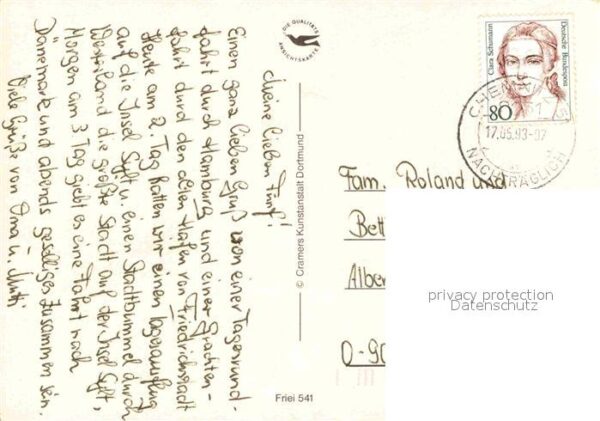 Meine Lieben Fünf!
Einen ganz lieben Gruß von einer Tagesrund-
fahrt durch Hamburg und einer Grachten-
fahrt durch den alten Hafen von Friedrichstadt
Heute am 2. Tag hatten wir einen Tagesausflug
auf die Insel Sylt u. einen Stadtbummel durch
Westerland die größte Stadt auf der Insel Sylt,
Morgen am 3 Tag giebt es eine Fahrt nach
Dänemark und abends geselliges Zusammen sein.
Viele Grüße von Oma u. Mutti
DIE QUALITÄTS
ANSICHTSKARTE
© Cramers Kunstanstalt Dortmund
Friei 541
Clara Schumann
Deutsche Bundespost
80
CHEMNITZ
17.05.93-07
NACHTRÄGLICH
Fam. Roland und
Bett
Alber
O-90
privacy protection
Datenschutz